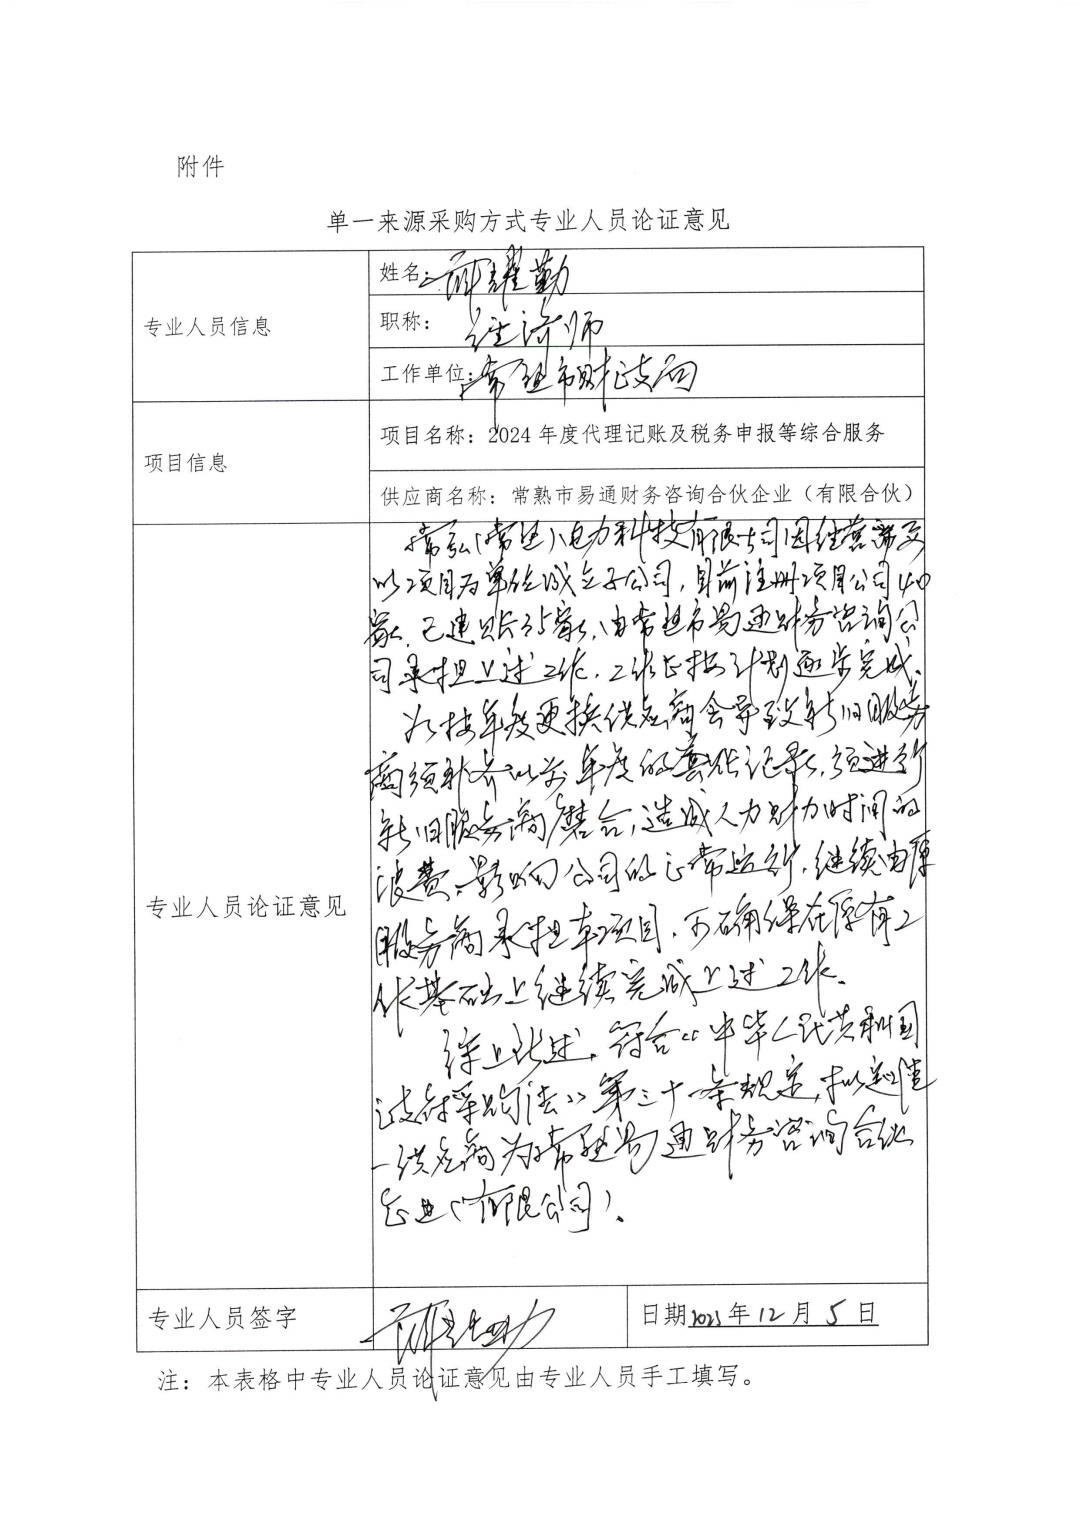 附件
单一来源采购方式专业人员论证意见
专业人员信息
姓名：薛耀勤
职称：经济师
工作单位：常熟市财政局
项目信息
项目名称：2024年度代理记账及税务申报等综合服务
供应商名称：常熟市易通财务咨询合伙企业（有限合伙）
专业人员论证意见
常弘（常熟）电力科技有限公司因经营需要
以项目为单位成立子公司，目前注册项目公司40
家，已建账35家，由常熟市易通财务咨询公
司承担上述工作，工作正按计划逐步完成。
如按年度更换供应商会导致新旧服务
商须补齐以前年度的套账记录，须进行
新旧服务商磨合，造成人力财力时间的
浪费，影响公司的正常运行，继续由原
服务商承担本项目，可确保在原有工
作基础上继续完成上述工作。
综上所述，符合《中华人民共和国
政府采购法》第三十一条规定，拟定唯
一供应商为常熟易通财务咨询合伙
企业（有限公司）。
专业人员签字
日期2023年12月5日
注：本表格中专业人员论证意见由专业人员手工填写。